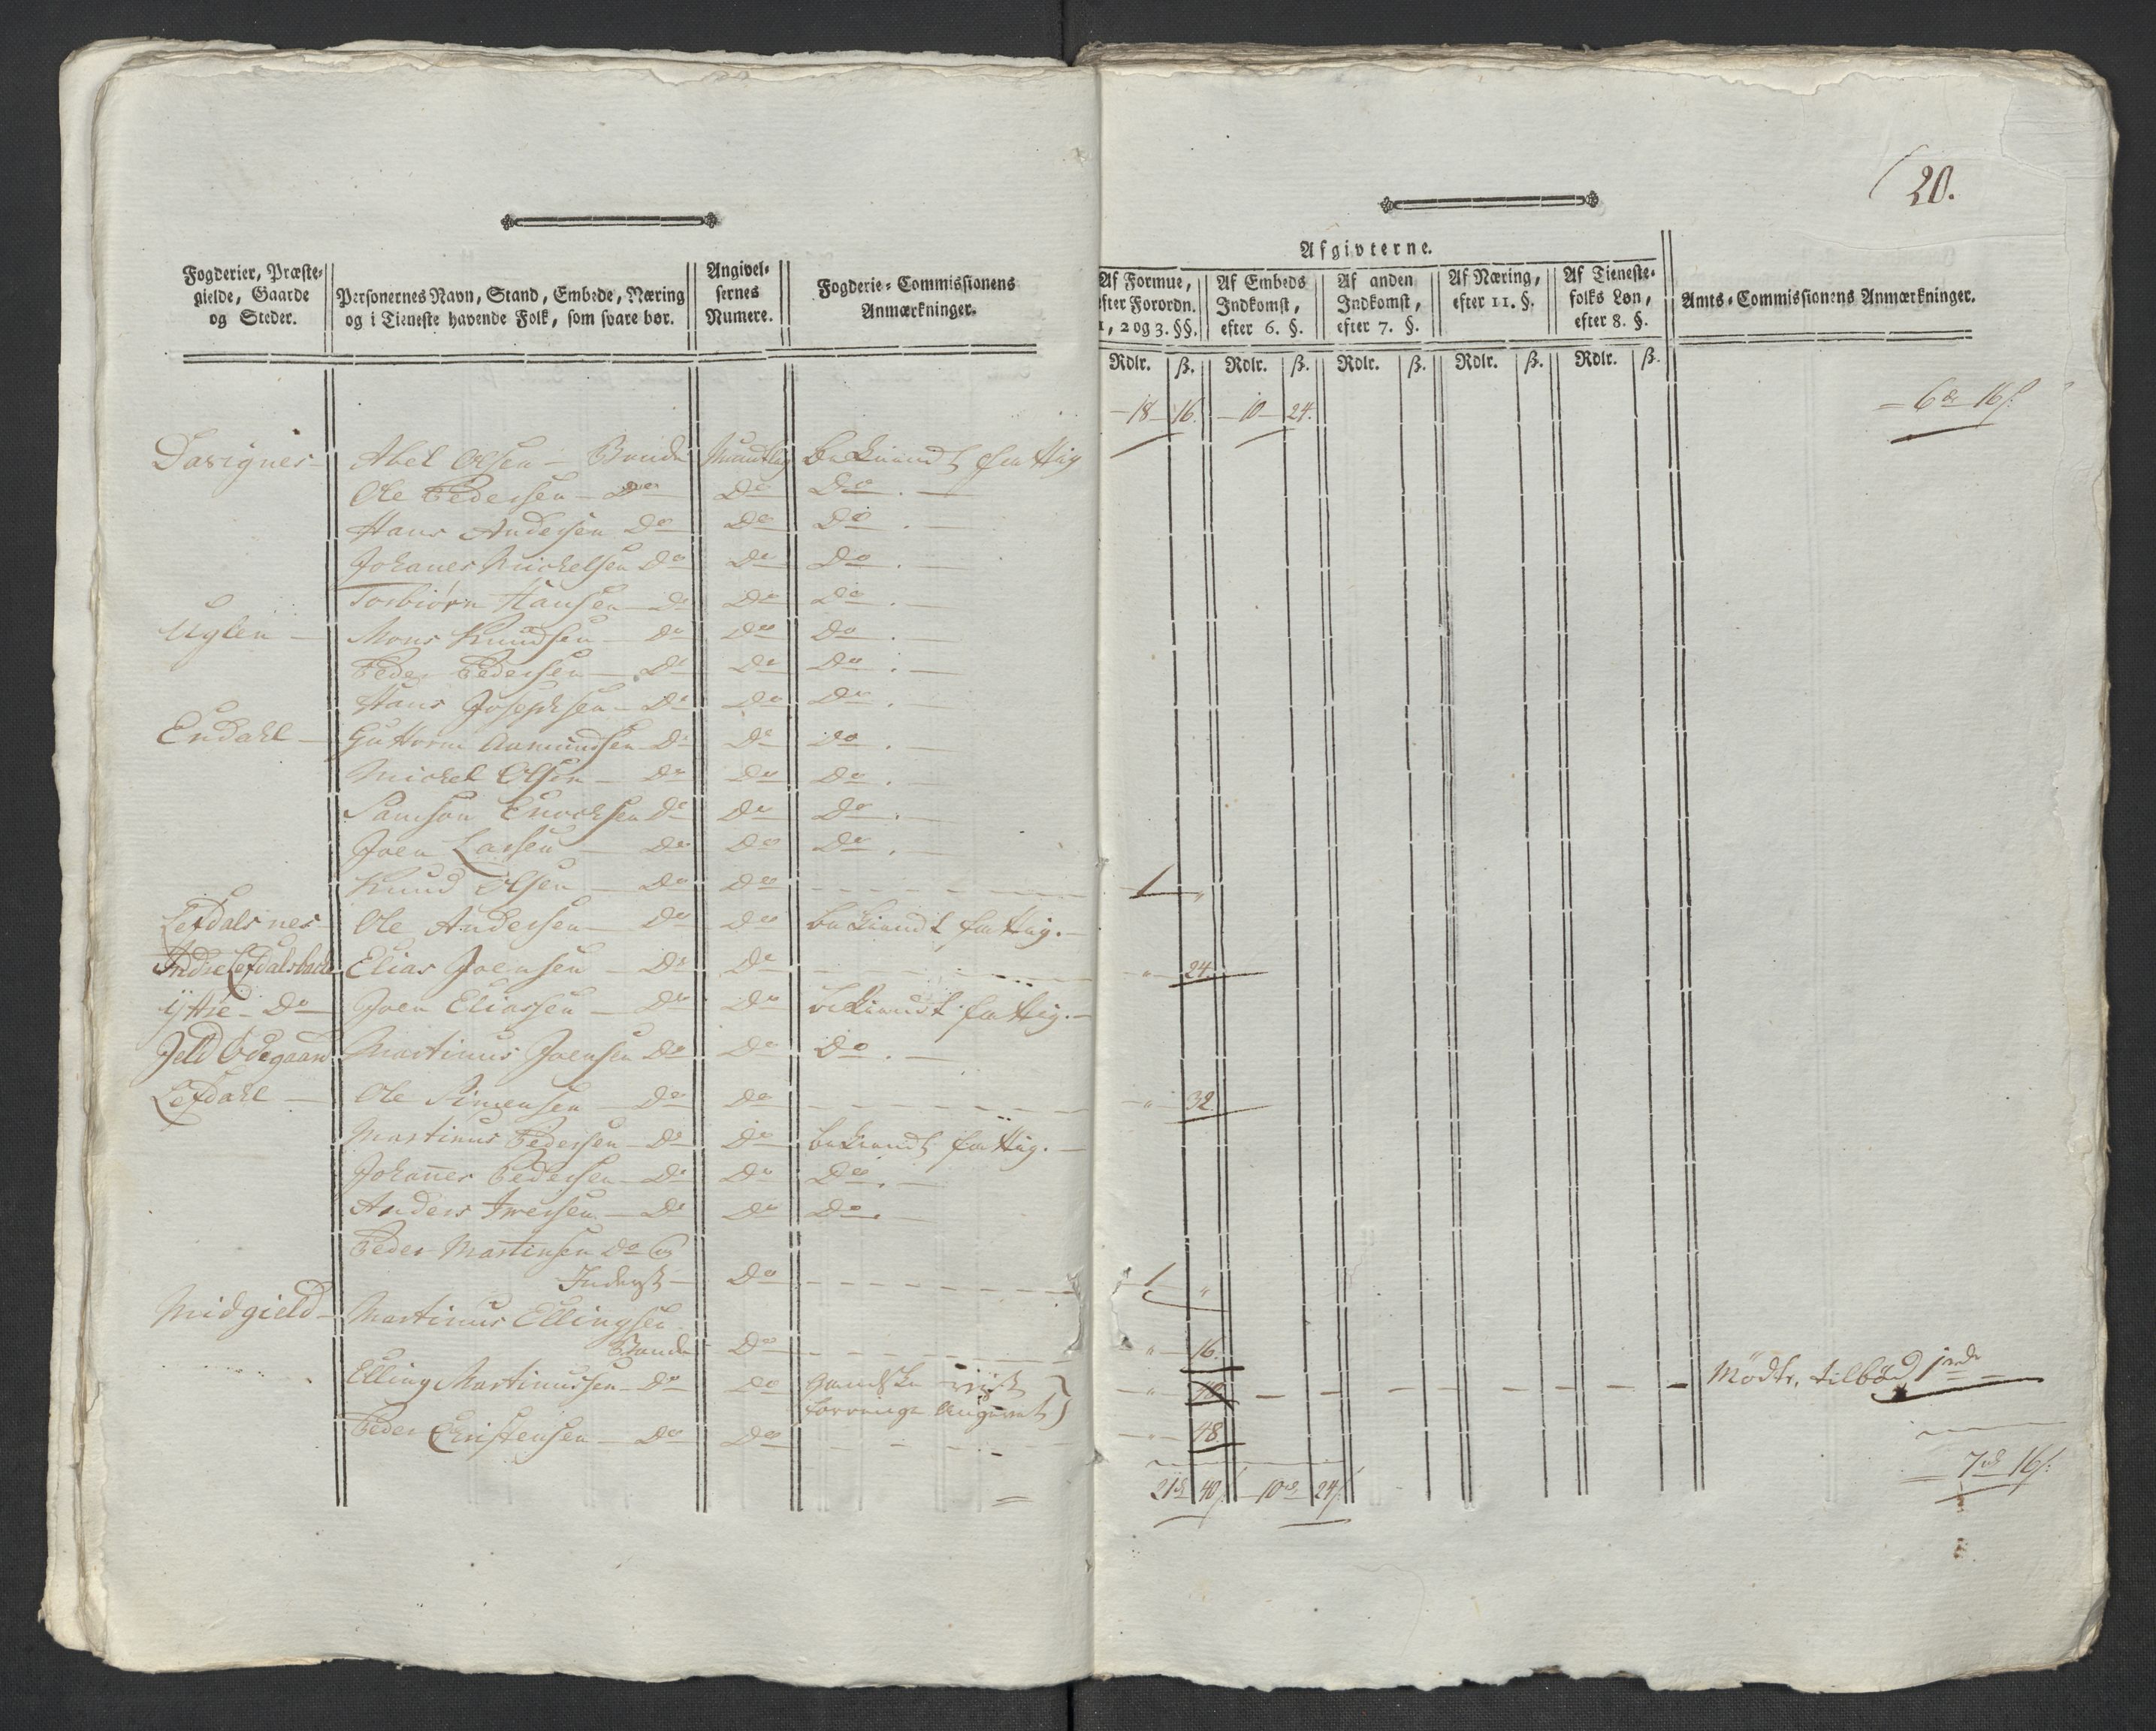 20.
Fogderier, Præste-
gielde, Gaarde
og Steder.
Personernes Navn, Stand, Embede, Næring
og i Tieneste havende Folk, som svare bør.
Angivel-
sernes
Numere.
Fogderie-Commissionens
Anmærkninger.
Afgivterne.
Af Formue,
efter Forordn.
1, 2 og 3. §§.
Af Embeds
Indkomst,
efter 6. §.
Af anden
Indkomst,
efter 7. §.
Af Næring,
efter 11. §.
Af Tieneste-
folks Løn,
efter 8. §.
Amts-Commissionens Anmærkninger.
Rdlr. ß. Rdlr. ß. Rdlr. ß. Rdlr. ß. Rdlr. ß.
18 16. 10 24. 6 rd 16 ß.
Davignes Abel Olsen Bonde Mundtlig bekiendt fattig
Ole Pedersen Do Do Do
Hans Andersen Do Do Do
Johanes Michelsen Do Do Do
Torbiørn Hansen Do Do Do
Uglen Mons Knudsen Do Do Do
Peder Pedersen Do Do Do
Hans Josephsen Do Do Do
Endahl Guttorm Aamundsen Do Do Do
Michel Olsen Do Do Do
Samson Enochsen Do Do Do
Joen Larsen Do Do Do
Knud Olsen Do Do 1 "
Lefdalsnes Ole Andersen Do Do bekiendt fattig.
Indre Lefdalsbache Elias Joensen Do Do " 24.
ÿttre Do Joen Eliassen Do Do bekiendt fattig.
Jeld Ødegaard Martinus Joensen Do Do Do
Lefdahl Ole Simensen Do Do " 32.
Martinus Pedersen Do Do bekiendt fattig.
Johañes Pedersen Do Do Do
Anders Iversen Do Do Do
Peder Martinsen Do og
Inderst Do 1 "
Midgield Martinus Ellingsen
Bonde Do " 16.
Elling Martinussen Do Do " Mødte, tilbød 1 rdr
Peder Christensen Do Do " 48.
21 rd 40 ß 10 rd 24 ß 7 rd 16 ß.